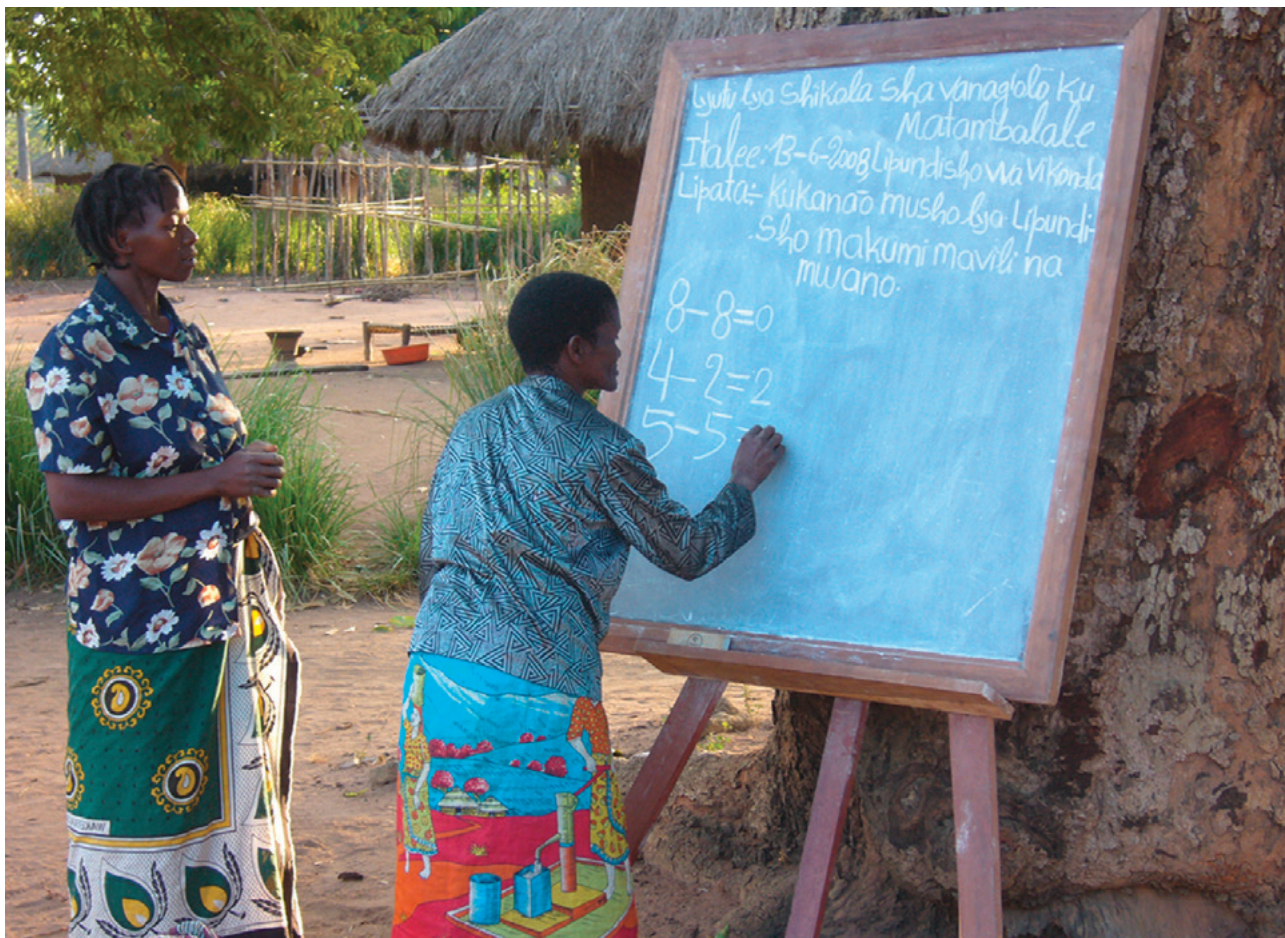 Lyutu lya Shikola sha vanagolo ku
Matambalale
Italee: 13-6-2008 Lipundisho wa vikonda
Lipata:- Kukanão musho lya Lipundi-
sho makumi mavili na
mwano.
8-8=0
4-2=2
5-5=